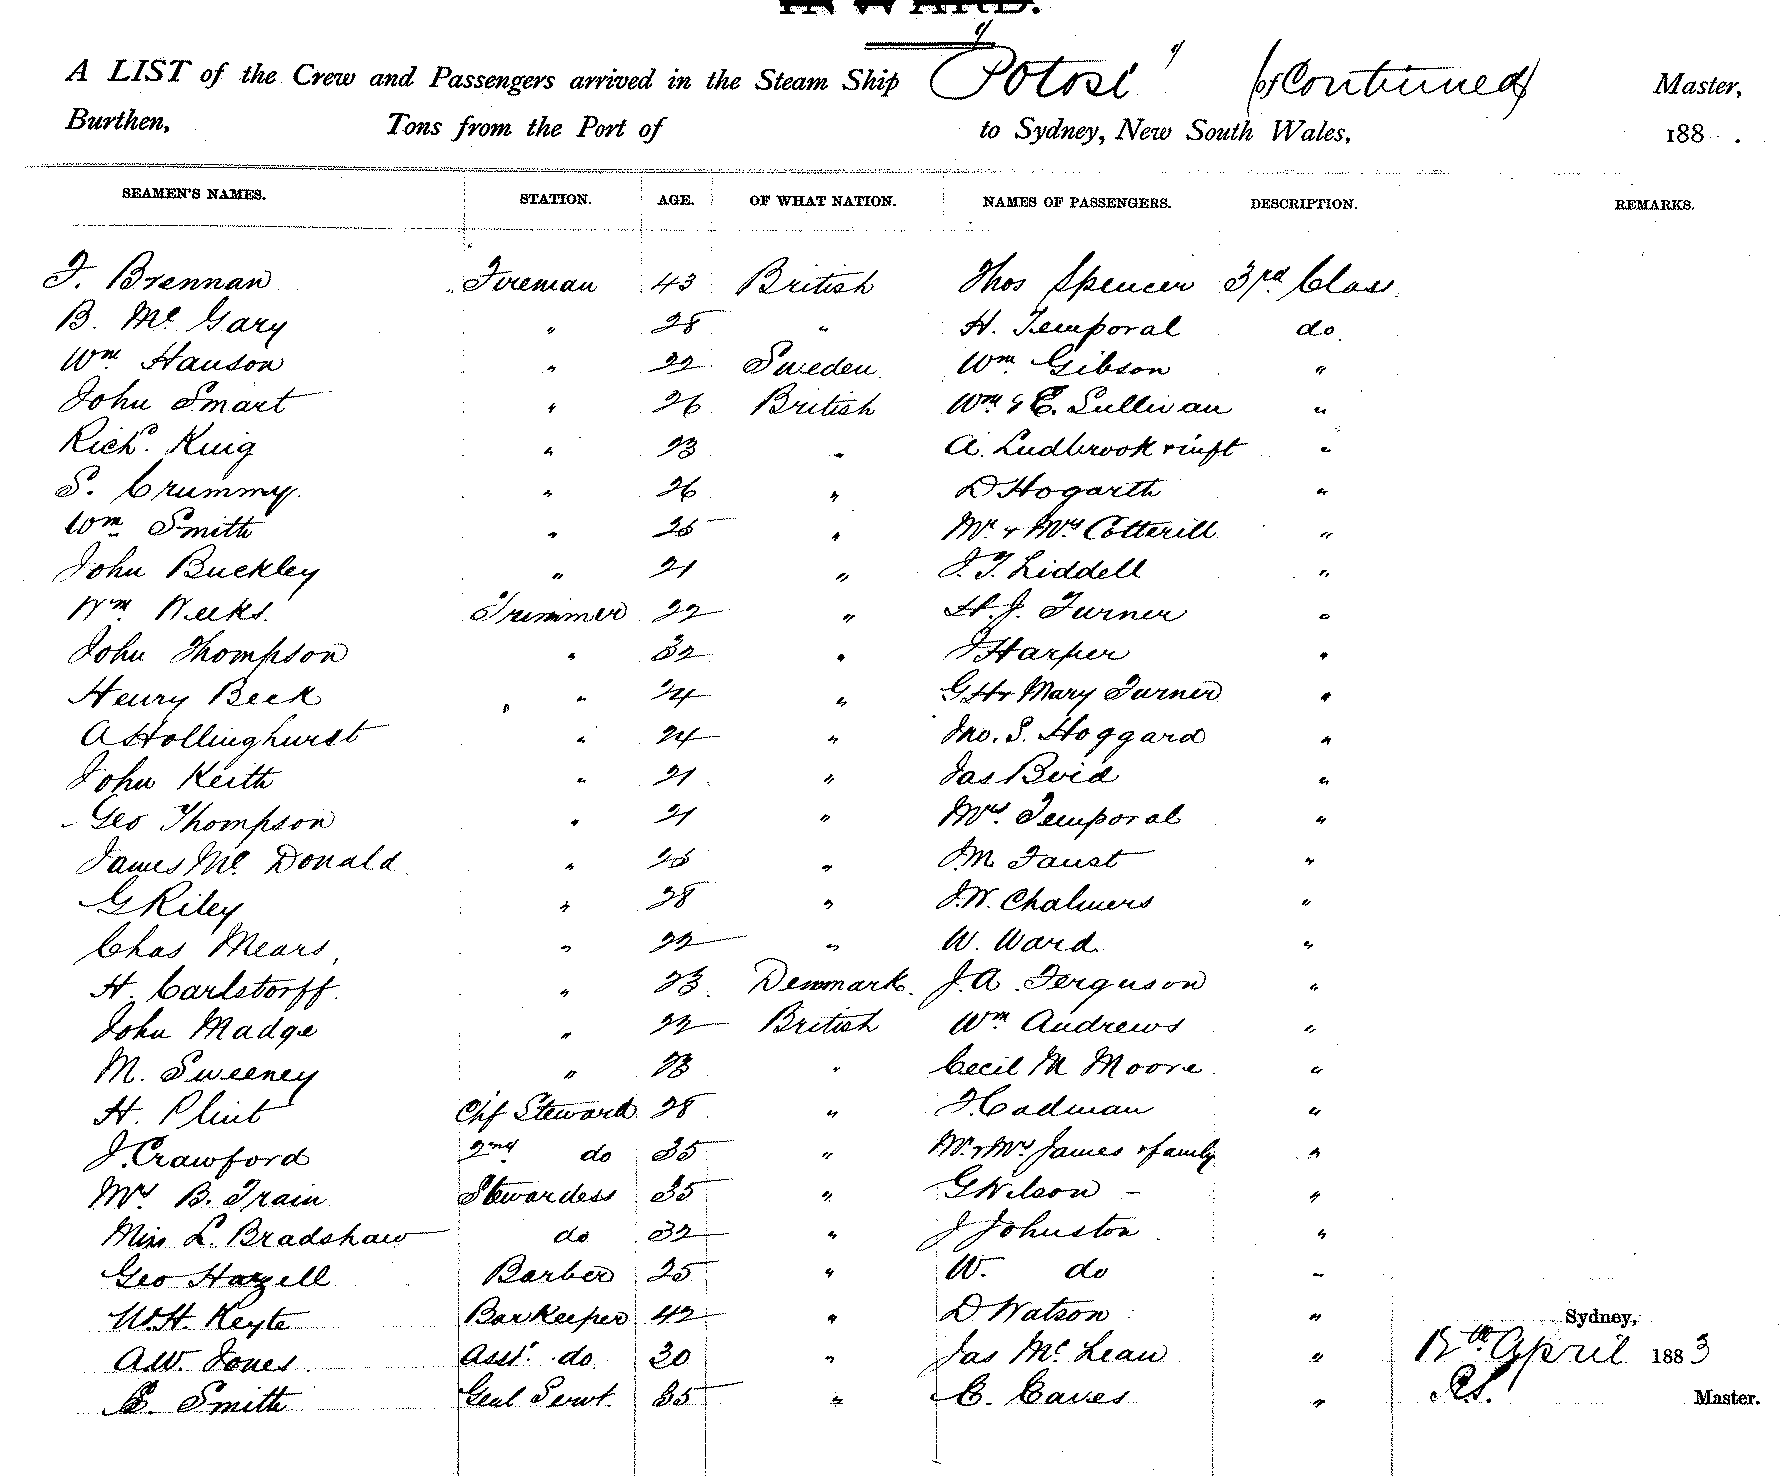 INWARD.
A LIST of the Crew and Passengers arrived in the Steam Ship "Potosi" of (Continued) Master,
Burthen, Tons from the Port of to Sydney, New South Wales, 188 .
SEAMEN'S NAMES. STATION. AGE. OF WHAT NATION. NAMES OF PASSENGERS. DESCRIPTION. REMARKS.
T. Brennan Fireman 43 British Thos Spencer 3rd Class
B. Mc Gary " 28 " H. Temporal do.
Wm Hanson " 22 Sweden Wm Gibson "
John Smart " 26 British Wm & C. Sullivan "
Richd. King " 23 " A. Ludbrook & inft "
S. Crummy. " 26 " D Hogarth "
Wm Smith " 25 " Mr & Mrs Cotterill "
John Buckley " 21 " J. T. Liddell "
Wm Weeks. Trimmer 22 " H. J. Turner "
John Thompson " 32 " J Harper "
Henry Beck " 24 " G. H & Mary Turner "
A Hollinghurst " 24 " Jno. S. Hoggard "
John Keith " 21 " Jas Boid "
Geo Thompson " 21 " Mrs. Temporal "
James Mc Donald " 25 " J. M Faust "
G Riley " 28 " J. W. Chalmers "
Chas Mears, " 22 " W. Ward "
H. Carlstorff. " 23 Denmark. J. A. Ferguson "
John Madge " 22 British Wm Andrews "
M. Sweeney " 23 " Cecil M Moore "
H. Plint Chf Steward 28 " J Cadman "
J. Crawford 2nd do 35 " Mr & Mrs James & family "
Mrs B. Train Stewardess 35 " G Wilson - "
Miss L. Bradshaw do 32 " J Johnston "
Geo Hazell Barber 25 " W. do "
W. H. Keyte Barkeeper 42 " D Watson "
Sydney,
A. W. Jones Asst. do 20 " Jas Mc Lean " April 1883
C. Smith Genl Servt. 35 " C. Eaves " Master.